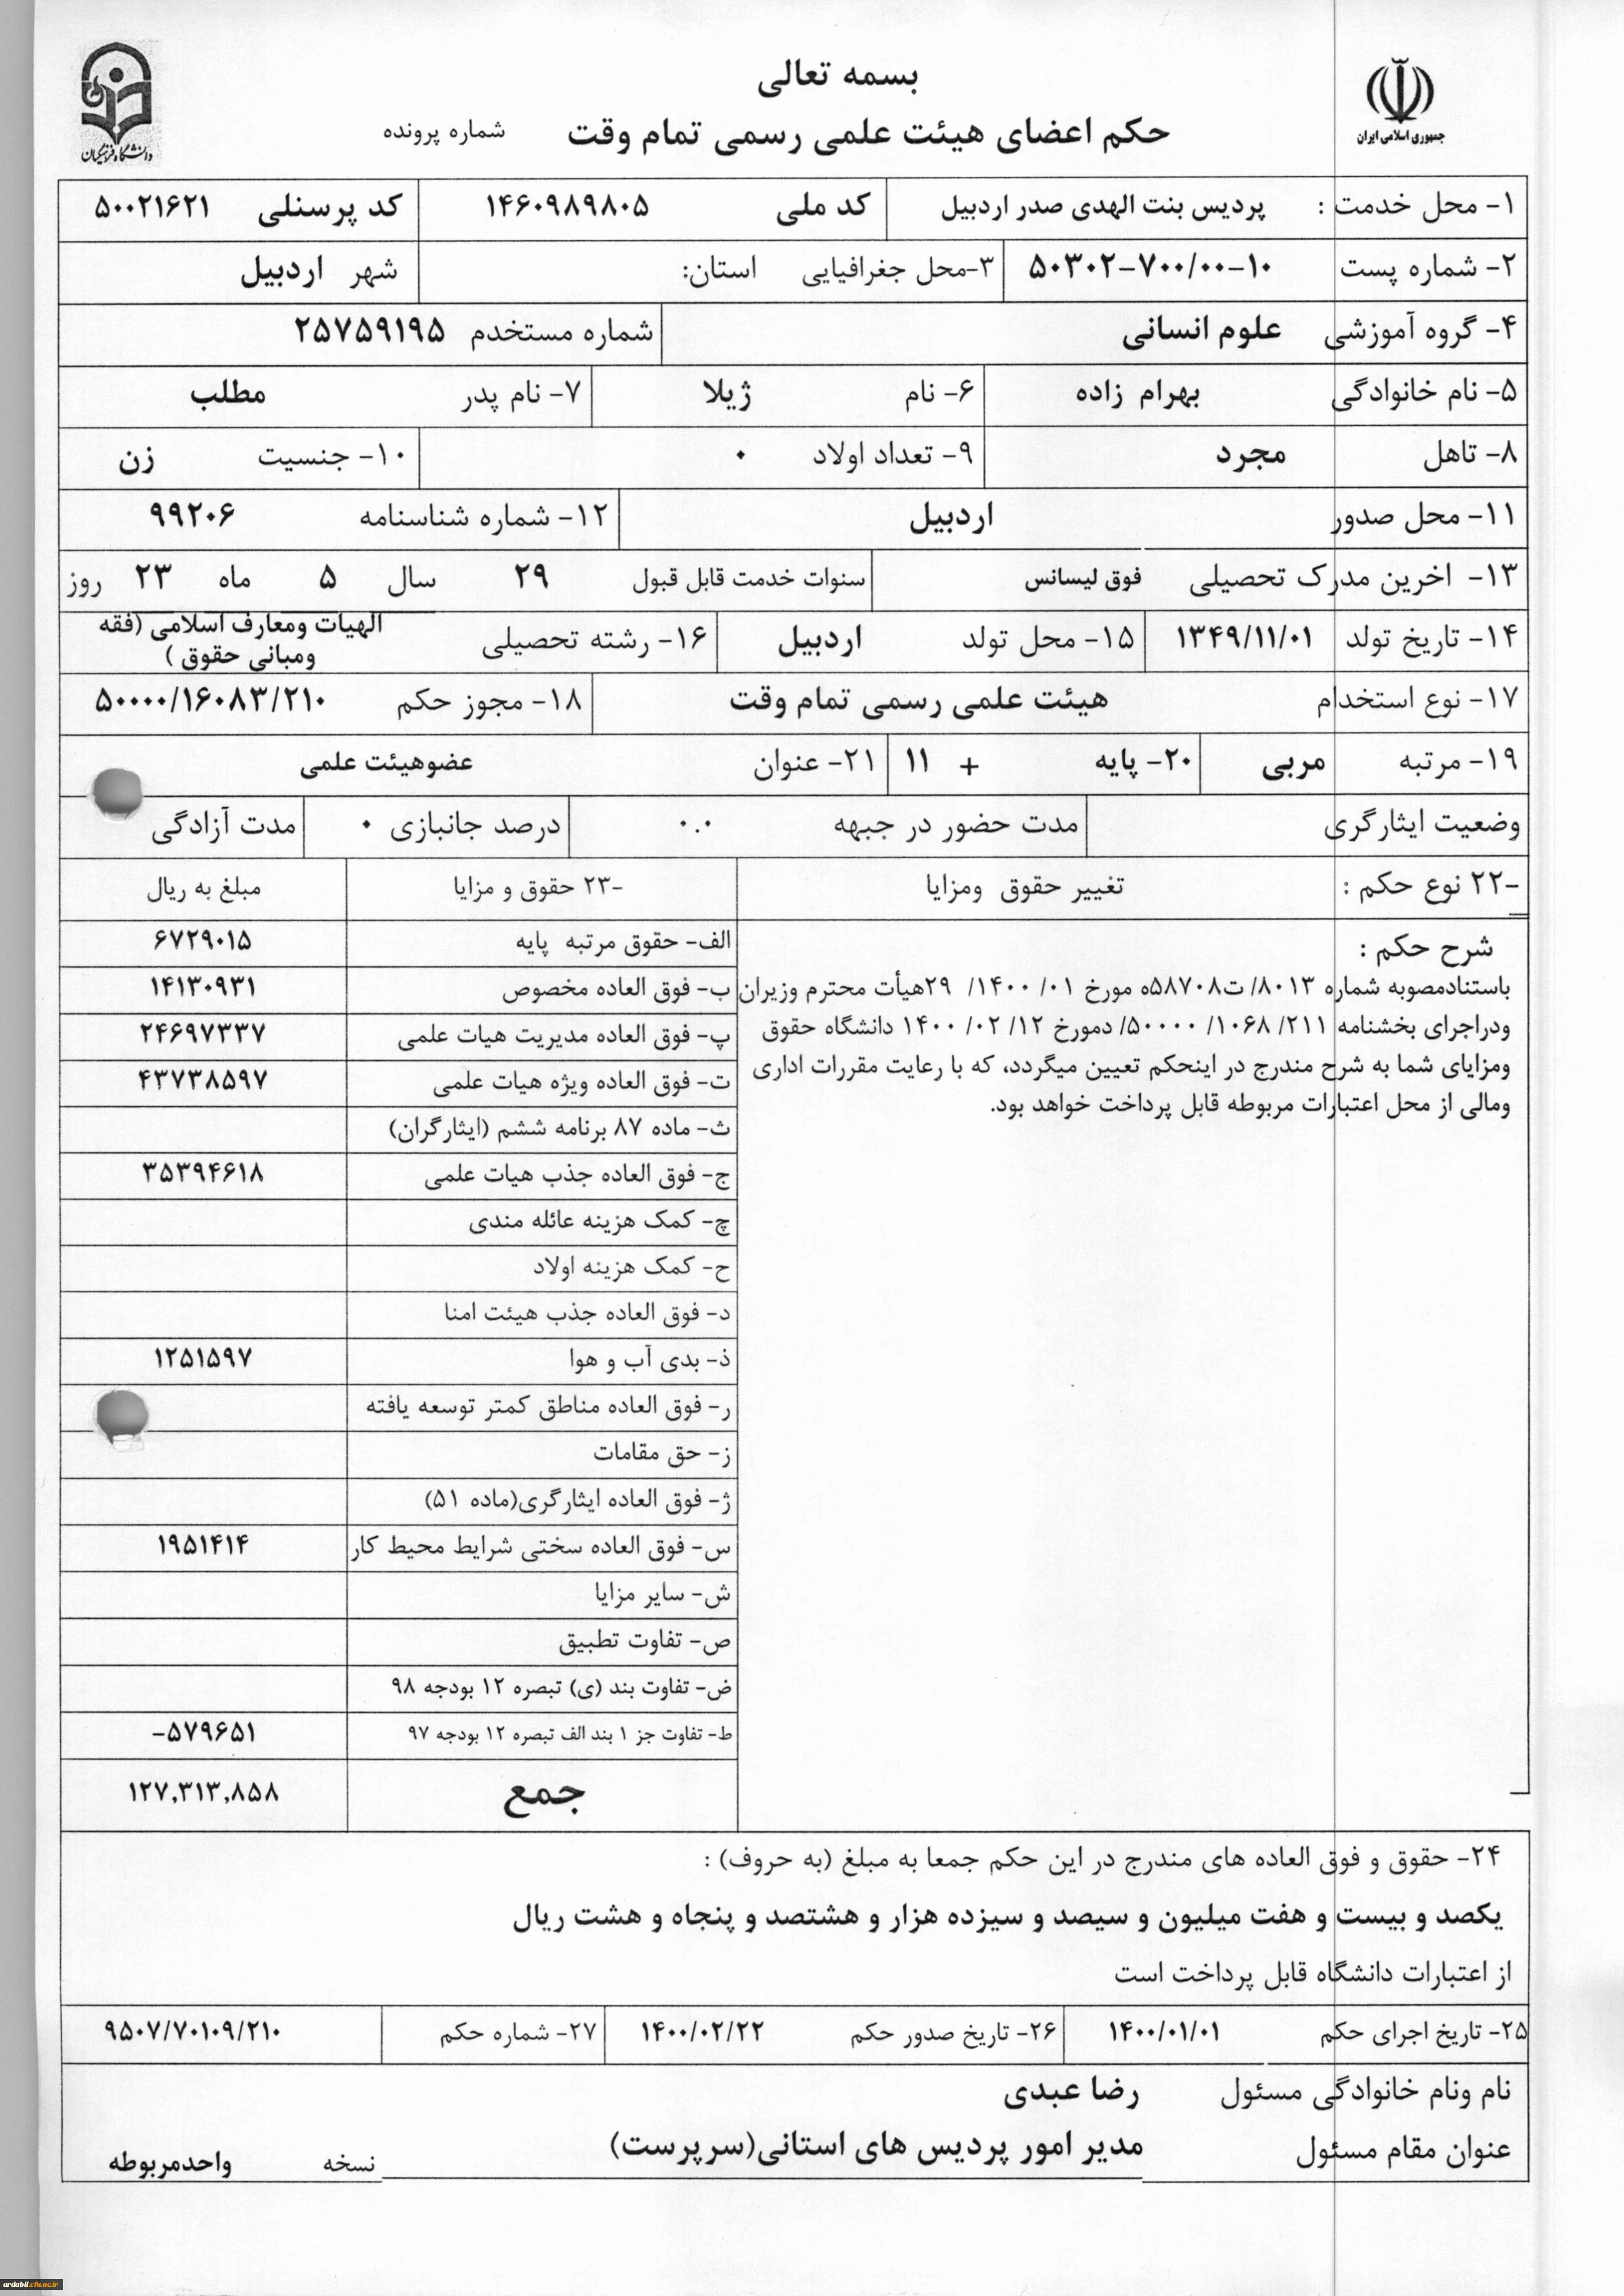 بسمه تعالی
جمهوری اسلامی ایران
دانشگاه فرهنگیان
حکم اعضای هیئت علمی رسمی تمام وقت شماره پرونده
۱- محل خدمت : پردیس بنت الهدی صدر اردبیل کد ملی ۱۴۶۰۹۸۹۸۰۵ کد پرسنلی ۵۰۰۲۱۶۲۱
۲- شماره پست ۵۰۳۰۲-۷۰۰/۰۰-۱۰ ۳-محل جغرافیایی استان: شهر اردبیل
۴- گروه آموزشی علوم انسانی شماره مستخدم ۲۵۷۵۹۱۹۵
۵- نام خانوادگی بهرام زاده ۶- نام ژیلا ۷- نام پدر مطلب
۸- تاهل مجرد ۹- تعداد اولاد ۰ ۱۰- جنسیت زن
۱۱- محل صدور اردبیل ۱۲- شماره شناسنامه ۹۹۲۰۶
۱۳- اخرین مدرک تحصیلی فوق لیسانس سنوات خدمت قابل قبول ۲۹ سال ۵ ماه ۲۳ روز
۱۴- تاریخ تولد ۱۳۴۹/۱۱/۰۱ ۱۵- محل تولد اردبیل ۱۶- رشته تحصیلی الهیات ومعارف اسلامی (فقه
ومبانی حقوق )
۱۷- نوع استخدام هیئت علمی رسمی تمام وقت ۱۸- مجوز حکم ۵۰۰۰۰/۱۶۰۸۳/۲۱۰
۱۹- مرتبه مربی ۲۰- پایه + ۱۱ ۲۱- عنوان عضوهیئت علمی
وضعیت ایثارگری مدت حضور در جبهه ۰.۰ درصد جانبازی ۰ مدت آزادگی
-۲۲ نوع حکم : تغییر حقوق ومزایا -۲۳ حقوق و مزایا مبلغ به ریال
شرح حکم :
باستنادمصوبه شماره ۸۰۱۳/ ت۵۸۷۰۸ه مورخ ۰۱/ ۱۴۰۰/ ۲۹هیأت محترم وزیران
ودراجرای بخشنامه ۲۱۱/ ۱۰۶۸/ ۵۰۰۰۰/ دمورخ ۱۲/ ۰۲/ ۱۴۰۰ دانشگاه حقوق
ومزایای شما به شرح مندرج در اینحکم تعیین میگردد، که با رعایت مقررات اداری
ومالی از محل اعتبارات مربوطه قابل پرداخت خواهد بود.
الف- حقوق مرتبه پایه ۶۷۲۹۰۱۵
ب- فوق العاده مخصوص ۱۴۱۳۰۹۳۱
پ- فوق العاده مدیریت هیات علمی ۲۴۶۹۷۳۳۷
ت- فوق العاده ویژه هیات علمی ۴۳۷۳۸۵۹۷
ث- ماده ۸۷ برنامه ششم (ایثارگران)
ج- فوق العاده جذب هیات علمی ۳۵۳۹۴۶۱۸
چ- کمک هزینه عائله مندی
ح- کمک هزینه اولاد
د- فوق العاده جذب هیئت امنا
ذ- بدی آب و هوا ۱۲۵۱۵۹۷
ر- فوق العاده مناطق کمتر توسعه یافته
ز- حق مقامات
ژ- فوق العاده ایثارگری(ماده ۵۱)
س- فوق العاده سختی شرایط محیط کار ۱۹۵۱۴۱۴
ش- سایر مزایا
ص- تفاوت تطبیق
ض- تفاوت بند (ی) تبصره ۱۲ بودجه ۹۸
ط- تفاوت جز ۱ بند الف تبصره ۱۲ بودجه ۹۷ -۵۷۹۶۵۱
جمع ۱۲۷,۳۱۳,۸۵۸
۲۴- حقوق و فوق العاده های مندرج در این حکم جمعا به مبلغ (به حروف) :
یکصد و بیست و هفت میلیون و سیصد و سیزده هزار و هشتصد و پنجاه و هشت ریال
از اعتبارات دانشگاه قابل پرداخت است
۲۵- تاریخ اجرای حکم ۱۴۰۰/۰۱/۰۱ ۲۶- تاریخ صدور حکم ۱۴۰۰/۰۲/۲۲ ۲۷- شماره حکم ۹۵۰۷/۷۰۱۰۹/۲۱۰
نام ونام خانوادگی مسئول رضا عبدی
عنوان مقام مسئول مدیر امور پردیس های استانی(سرپرست) نسخه واحدمربوطه
ardabil.cfu.ac.ir